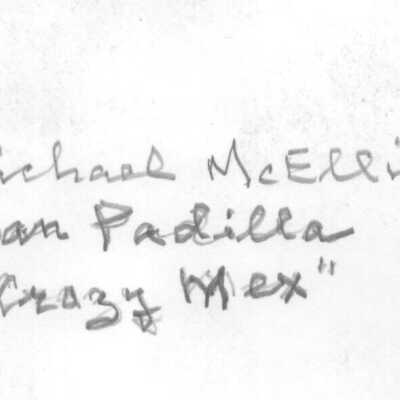 ichael McElli
an Padilla
Crazy Mex"